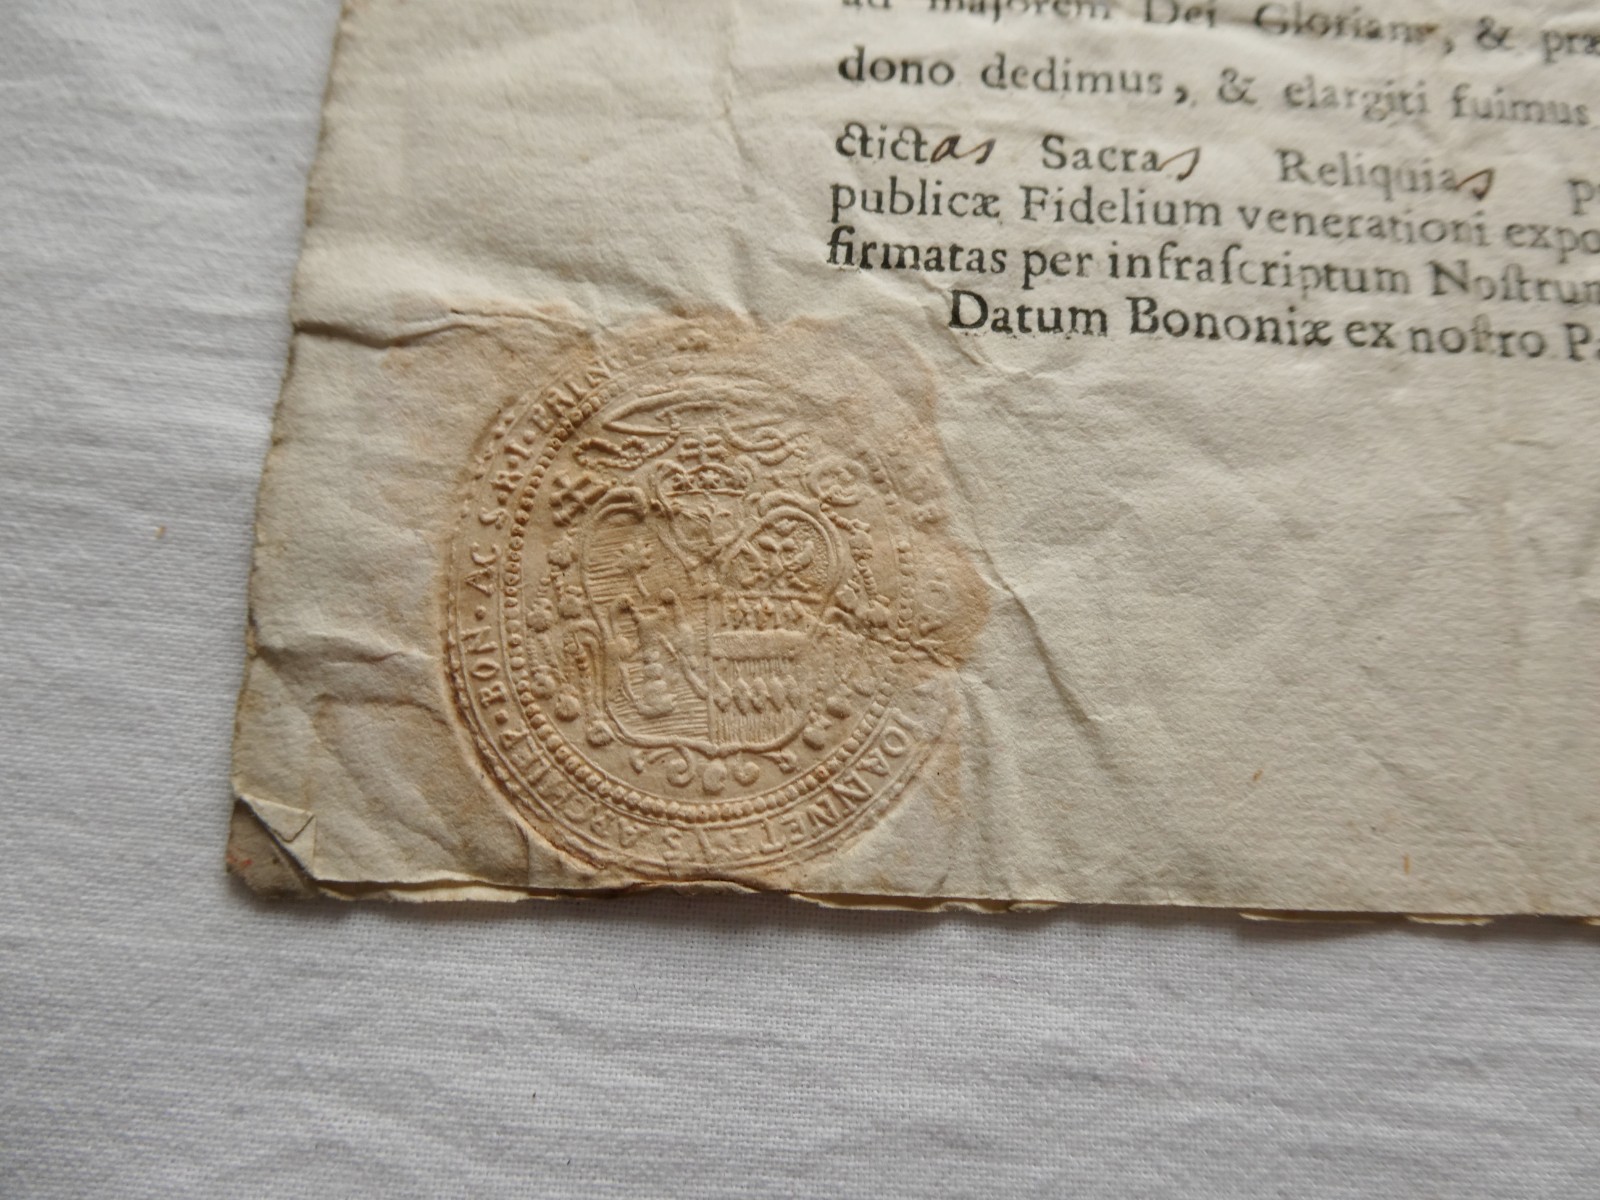 ad majorem Dei Gloriam, & præ
dono dedimus, & elargiti fuimus
ctictas Sacras Reliquias
publicæ Fidelium venerationi expo
firmatas per infraſcriptum Noſtrum
Datum Bononiæ ex noſtro Pa
IOANNETTVS ARCHIEP · BON · AC S · R · I · PRINC